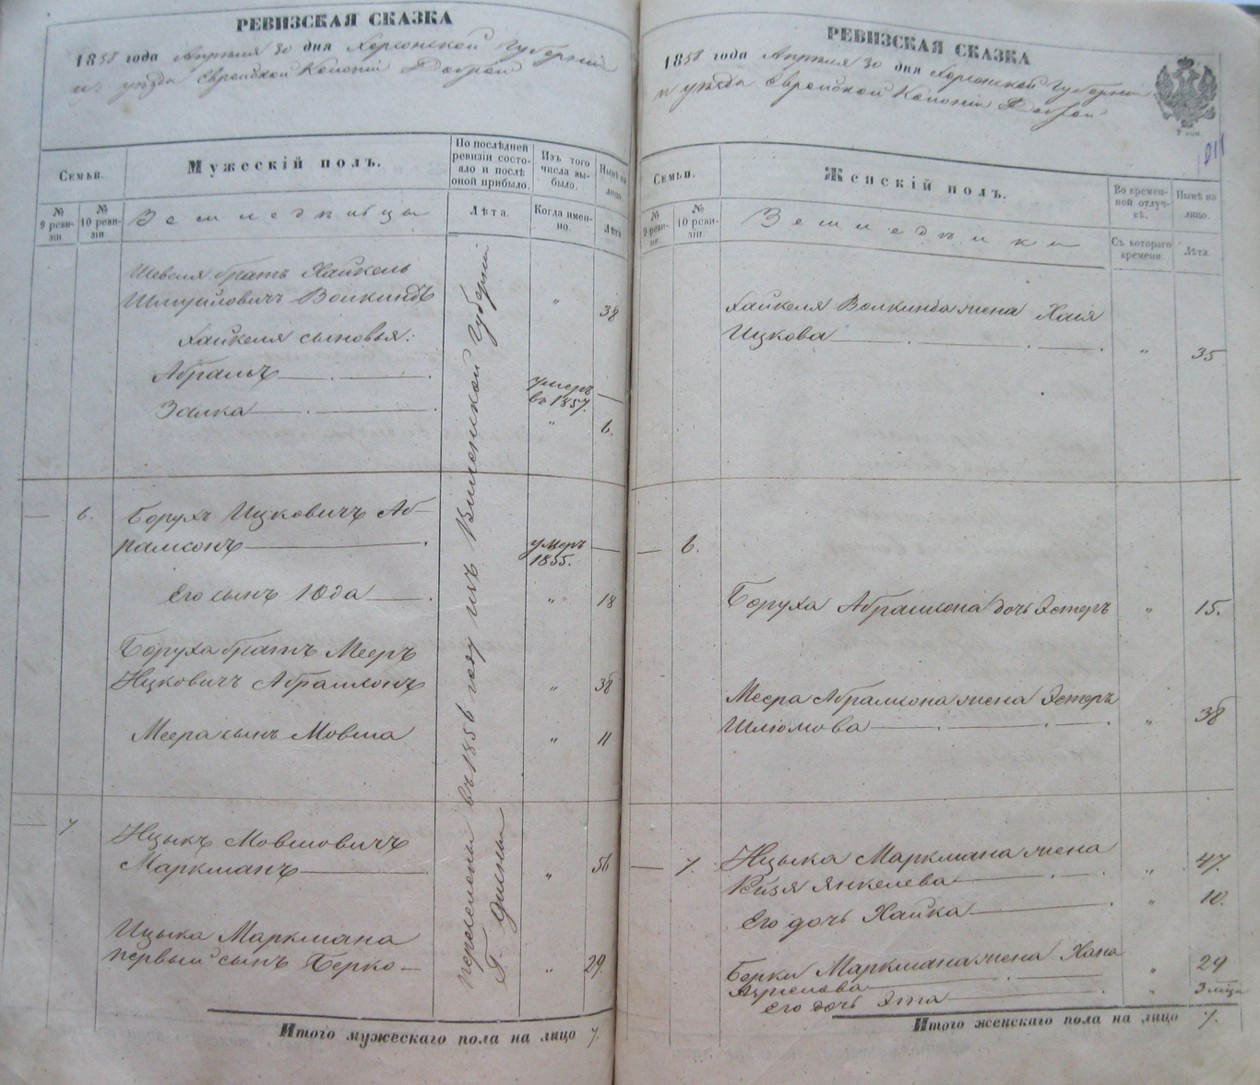 РЕВИЗСКАЯ СКАЗКА
1858 года Апреля 30 дня Херсонской Губернии
уезда Еврейской Колоніи Доброй
Семьи.
Мужескій полъ.
По последней ревизіи состояло и послѣ оной прибыло.
Изъ того числа выбыло.
Нынѣ на лицо.
№ 9 ревизіи.
№ 10 ревизіи.
Земледѣльцы
Лѣта.
Когда именно.
Лѣта
Шевеля братъ Хайкель
Шмуйловичъ Волкиндъ " 38
Хайкеля сыновья:
Абрамъ умеръ въ 1857. —
Залка " 6.
— 6. Борухъ Ицковичъ Аб-
рамсонъ умеръ 1855. —
Его сынъ Юда " 18
Боруха братъ Мееръ
Ицковичъ Абрамсонъ " 38
Меера сынъ Мовша " 11
— 7 Ицыкъ Мовшовичъ
Маркманъ " 56
Ицыка Маркмана
первый сынъ Берко — " 29.
перечислены въ 1856 году изъ Виленской Губерніи
Г. Дисны
Итого мужескаго пола на лицо 7.
РЕВИЗСКАЯ СКАЗКА
1858 года Апреля 30 дня Херсонской Губерніи
и уезда Еврейской Колоніи Доброй
Семьи.
Женскій полъ.
Во временной отлучкѣ.
Нынѣ на лицо.
№ 9 ревизіи.
№ 10 ревизіи.
Съ котораго времени.
Лѣта.
Хайкеля Волкинда жена Хая
Ицкова " 35
— 6.
Боруха Абрамсона дочь Эстеръ " 15.
Меера Абрамсона жена Эстеръ
Шлиомова " 38
— 7. Ицыка Маркмана жена " 47.
Рейзя Янкелева
Его дочь Хайка " 10.
Берки Маркмана жена Хана " 29
Его дочь Эта " 3 мѣца
Итого женскаго пола на лицо 7.